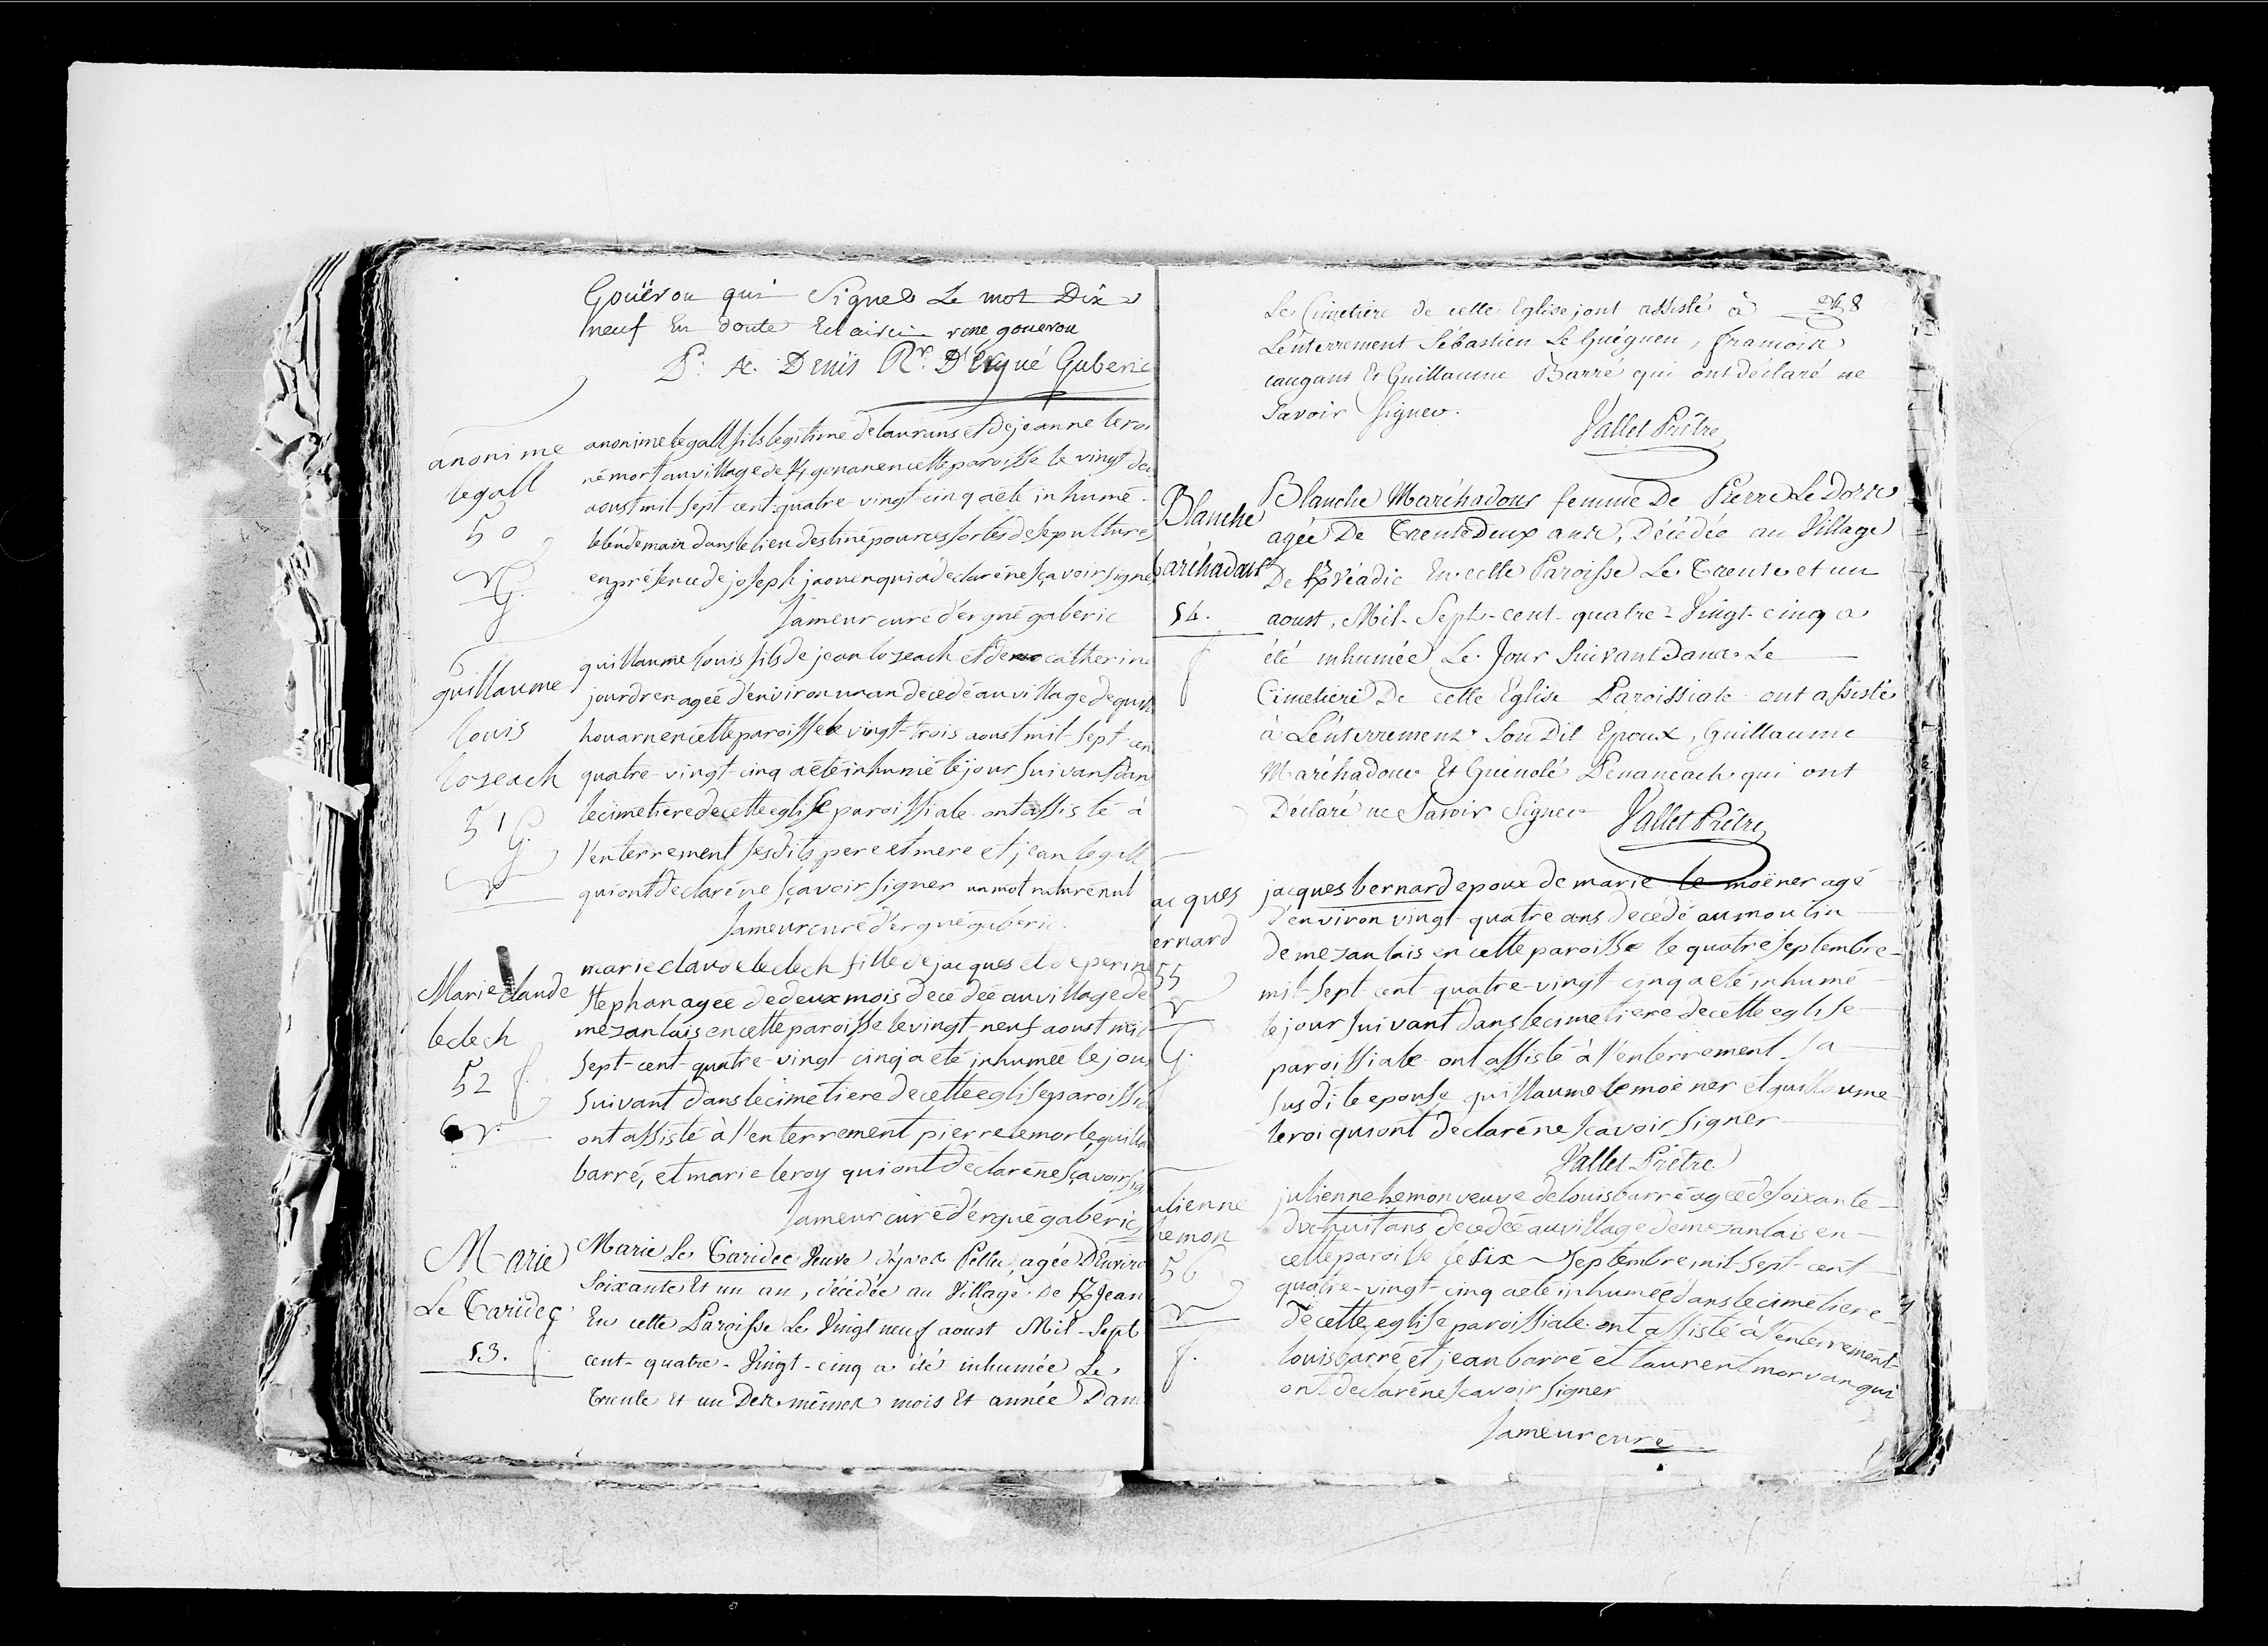 Gouërou qui Signe Le mot Dix
neuf En doute Eclairci rene gouerou
P. A. Denis Rr. D'Ergué Gaberic
anonime
legall
50
G.
anonime legall fils legitime de laurans et de jeanne leroi
né mort au village de en cette paroisse le vingt deu
aoust mil-sept-cent-quatre-vingt-cinq a été inhumé
le lendemain dans le lieu destiné pour ces sortes de sepultures
en présence de joseph jaouen qui a declaré ne sçavoir signer
Jameur curé d'ergué gaberic
guillaume
louis
lozeach
51 G.
guillaume louis fils de jean lozeach et de catherine
jourdren agée d'environ un an decedé au village de
houarn en cette paroisse le vingt-trois aoust mil-sept-cen
quatre-vingt-cinq a été inhumé le jour suivant dan
le cimetiere de cette eglise paroissiale ont assisté à
l'enterrement sesdits pere et mere et jean le gall
qui ont declaré ne sçavoir signer un mot raturé nul
Jameur curé d'ergué gaberic.
Marie Claude
le clech
52 f.
marie claude le clech fille de jacques et de perine
Stephan agée de deux mois decédée au village de
mezanlais en cette paroisse le vingt-neuf aoust mil
sept-cent-quatre-vingt-cinq a été inhumée le jou
suivant dans le cimetiere de cette eglise paroissia
ont assisté à l'enterrement pierre lemorle, guilla
barré, et marie leroy qui ont déclaré ne sçavoir sig
Jameur curé d'ergué gaberic
Marie
Le Caridec
53. f.
Marie Le Caridec Veuve d'yves Pellu, agée D'Enviro
Soixante Et un an, décédée au Village De Jean
En cette Paroisse Le Vingt neuf aoust Mil-Sept
cent-quatre-Vingt-cinq a été inhumée Le
Trente et un Des mêmes mois Et année Dans
Le Cimetiere de cette Eglise, ont assisté à 8
L'enterrement Sébastien Le Guéguen, framoise
caugant Et Guillaume Barré qui ont déclaré ne
Savoir Signer.
Vallet Prêtre
Blanche
aréhadour
54.
f
Blanche Maréhadour femme De Pierre Le Dorre
agée De Trente Deux ans, Décédée au Village
De Kvréadic En cette Paroisse Le Trente et un
aoust, Mil-Sept-cent-quatre-Vingt-cinq a
été inhumée Le Jour Suivant Dans Le
Cimetiere De cette Eglise Paroissiale ont assisté
à L'enterrement Son Dit Epoux, Guillaume
Maréhadour Et Guénolé Penancach qui ont
Déclaré ne Savoir Signer
Vallet Prêtre
acques
ernard
55
G.
jacques bernard epoux de marie le moëner agé
d'environ vingt-quatre ans decedé au moulin
de mezanlais en cette paroisse le quatre septembre
mil-sept-cent-quatre-vingt-cinq a été inhumé
le jour suivant dans le cimetiere de cette eglise
paroissiale ont assisté à l'enterrement sa
susdite epouse guillaume le moëner et guillaume
leroi qui ont declaré ne scavoir signer
Vallet Prêtre
ulienne
hemon
56
f.
julienne hemon veuve de louis barré agée de soixante
dix-huit ans decedée au village de mezanlais en
cette paroisse le six septembre, mil-sept-cent
quatre-vingt-cinq a été inhumée dans le cimetiere
de cette eglise paroissiale ont assisté à l'enterrement
louis barré et jean barré et laurent morvan qui
ont declaré ne scavoir signer
Jameur curé